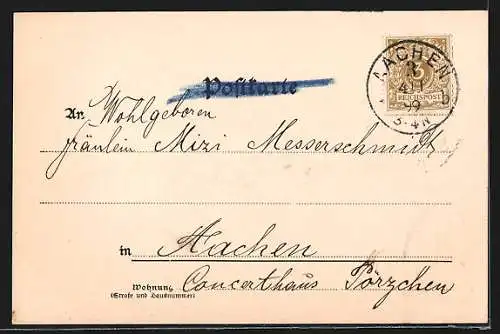 Postkarte
An Wohlgeboren
Fräulein Mizi Messerschmidt
in Aachen
Wohnung Concerthaus Pörzchen
(Straße und Hausnummer)
AACHEN
2
4 11
99
3-4N
REICHSPOST